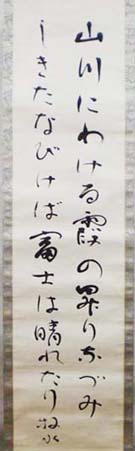 山川にわける霞の翠りなづみ
しきたなびけば富士は晴れたり 牧水